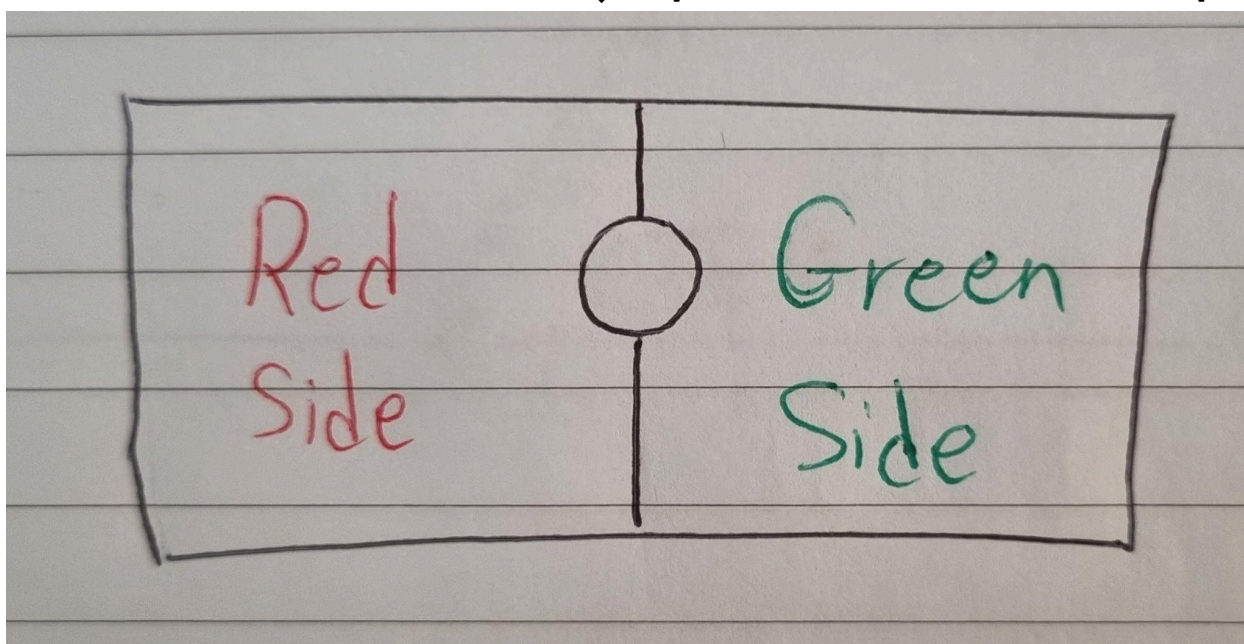 Red
Side
Green
Side